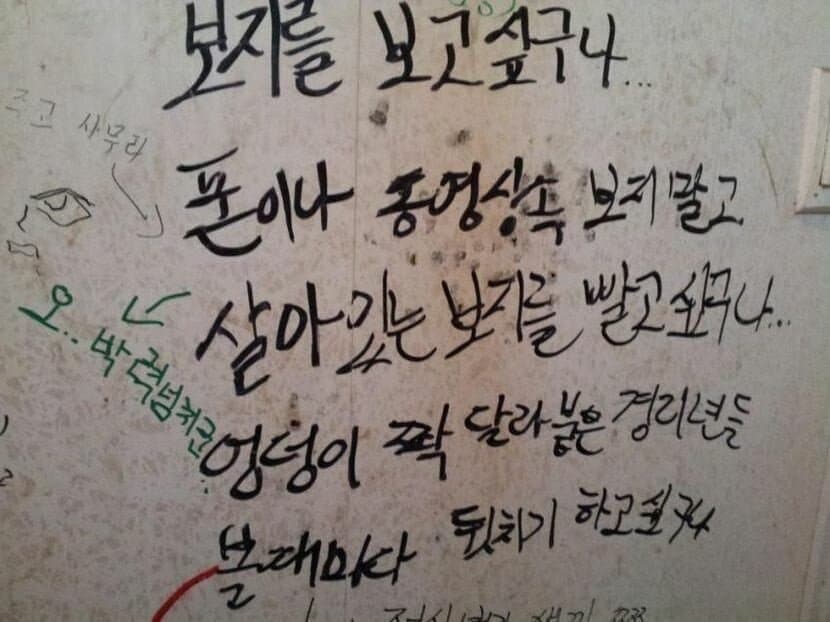 보지를 보고 싶구나...
즈고 사무라
폰이나 동영상속 보지 말고
살아있는 보지를 빨고 싶구나...
오.. 박력넘치군..
엉덩이 짝 달라붙은 경리년들
볼때마다 뒷치기 하고싶구나